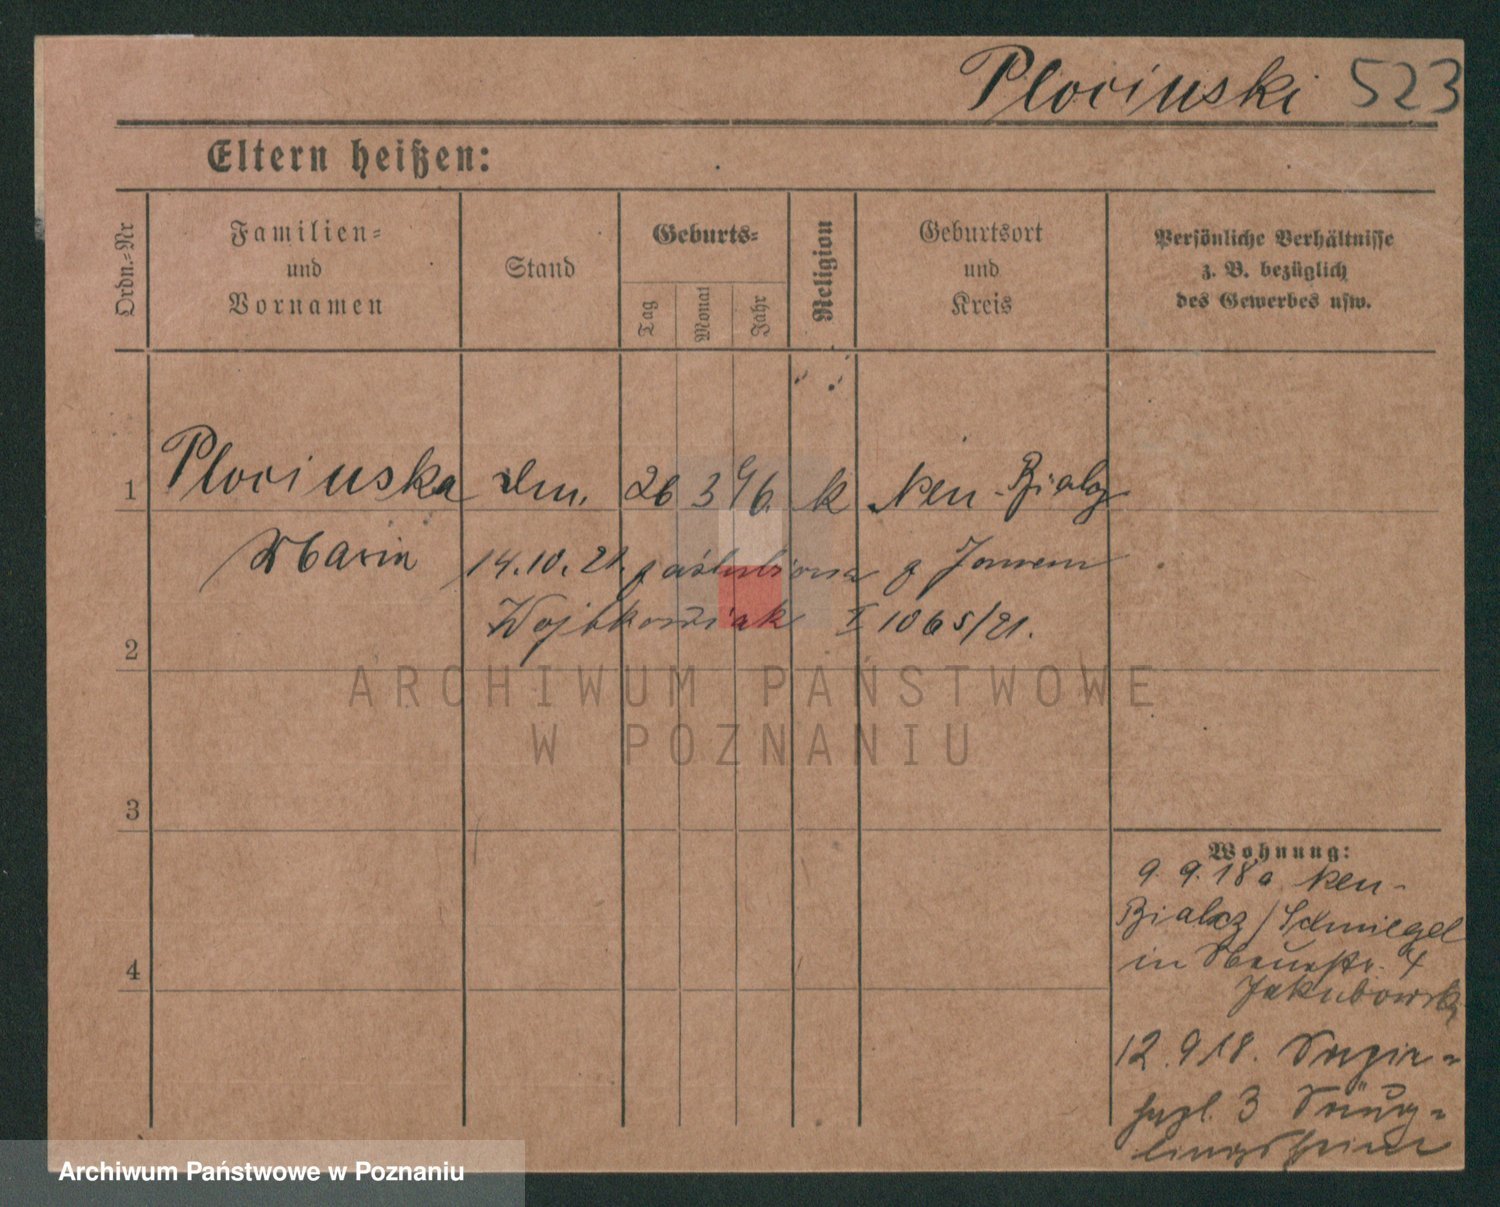 Plociuski 523
Eltern heißen:
Ordn.=Nr
Familien=
und
Vornamen
Stand
Geburts=
Tag
Monat
Jahr
Religion
Geburtsort
und
Kreis
Persönliche Verhältnisse
z. B. bezüglich
des Gewerbes usw.
1 Plociuska 26 3 96. k Neu-Bialcz
Maria 14.10.21. zaślubiona z Janem
Wojtkowiak I 1065/21.
2
ARCHIWUM PAŃSTWOWE
W POZNANIU
3
4
Wohnung:
9. 9. 18 a Neu-
Bialcz/Schmiegel
in 4
Jakubowski
12.9.18.
3 Säug=
lingsheim
Archiwum Państwowe w Poznaniu